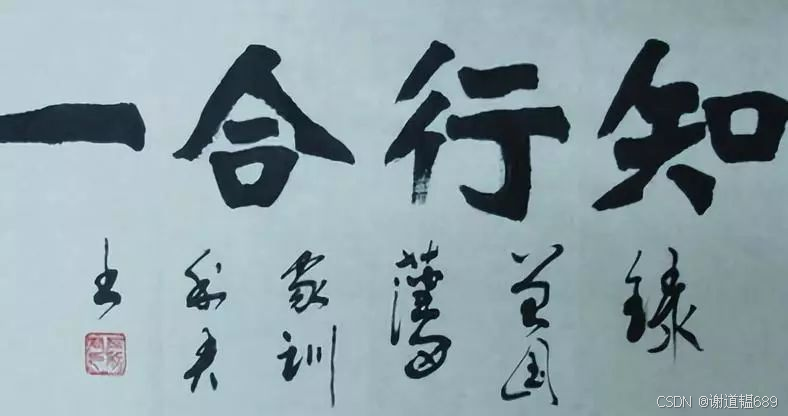 知行合一
録曾国藩家训
书
CSDN @谢道韫689